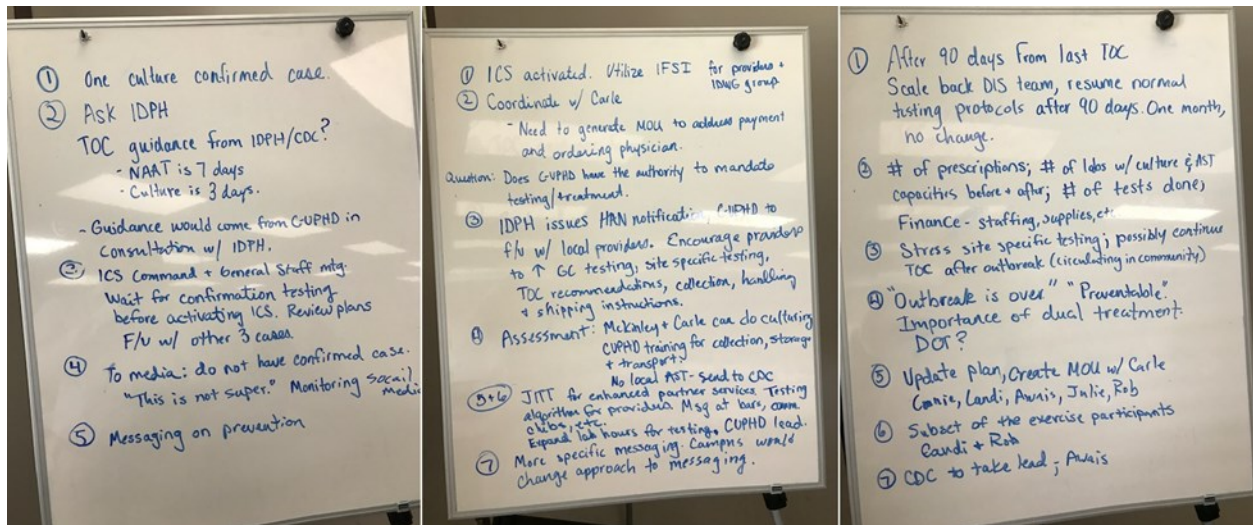 ① One culture confirmed case.
② Ask IDPH
TOC guidance from IDPH/CDC?
- NAAT is 7 days
- Culture is 3 days.
- Guidance would come from C-UPHD in
consultation w/ IDPH.
③ ICS Command + General Staff mtg.
Wait for confirmation testing
before activating ICS. Review plans
F/U w/ other 3 cases
④ To media: do not have confirmed case.
"This is not super." Monitoring socail
media
⑤ Messaging on prevention
① ICS activated. Utilize IFSI for providers +
IDWG group
② Coordinate w/ Carle
- Need to generate MOU to address payment
and ordering physician.
Question: Does C-UPHD have the authority to mandate
testing/treatment.
③ IDPH issues HAN notification, C-UPHD to
f/u w/ local providers. Encourage providers
to ↑ GC testing, site specific testing,
TOC recommendations, collection, handling
+ shipping instructions.
④ Assessment: McKinley + Carle can do culturing
CUPHD training for collection, storage
+ transport.
No local AST - send to CDC
⑤+⑥ JITT for enhanced partner services. Testing
algorithm for providers. Msg at bars, comm.
clubs, etc.
Expand lab hours for testing, CUPHD lead.
⑦ More specific messaging. Campus would
change approach to messaging.
① After 90 days from last TOC
Scale back DIS team, resume normal
testing protocols after 90 days. One month,
no change.
② # of prescriptions; # of labs w/ culture & AST
capacities before + after; # of tests done;
Finance - staffing, supplies, etc.
③ Stress site specific testing; possibly continue
TOC after outbreak (circulating in community)
④ "Outbreak is over" "Preventable".
Importance of dual treatment.
DOT?
⑤ Update plan, Create MOU w/ Carle
Connie, Landi, Awais, Julie, Rob
⑥ Subset of the exercise participants
Candi + Rob
⑦ CDC to take lead; Awais